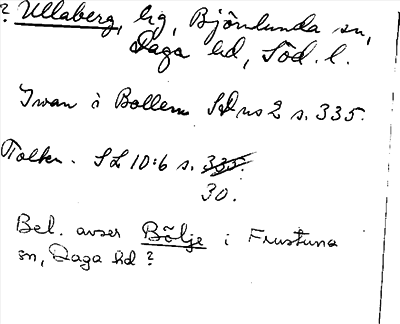 ? Ullaberg, hg, Björnlunda sn,
Daga hd, Söd. l.
Iwan i Bollem SD ns 2 s. 335.
Tolkn. SL 10:6 s. 335.
30.
Bel. avser Bölje i Frustuna
sn, Daga hd?